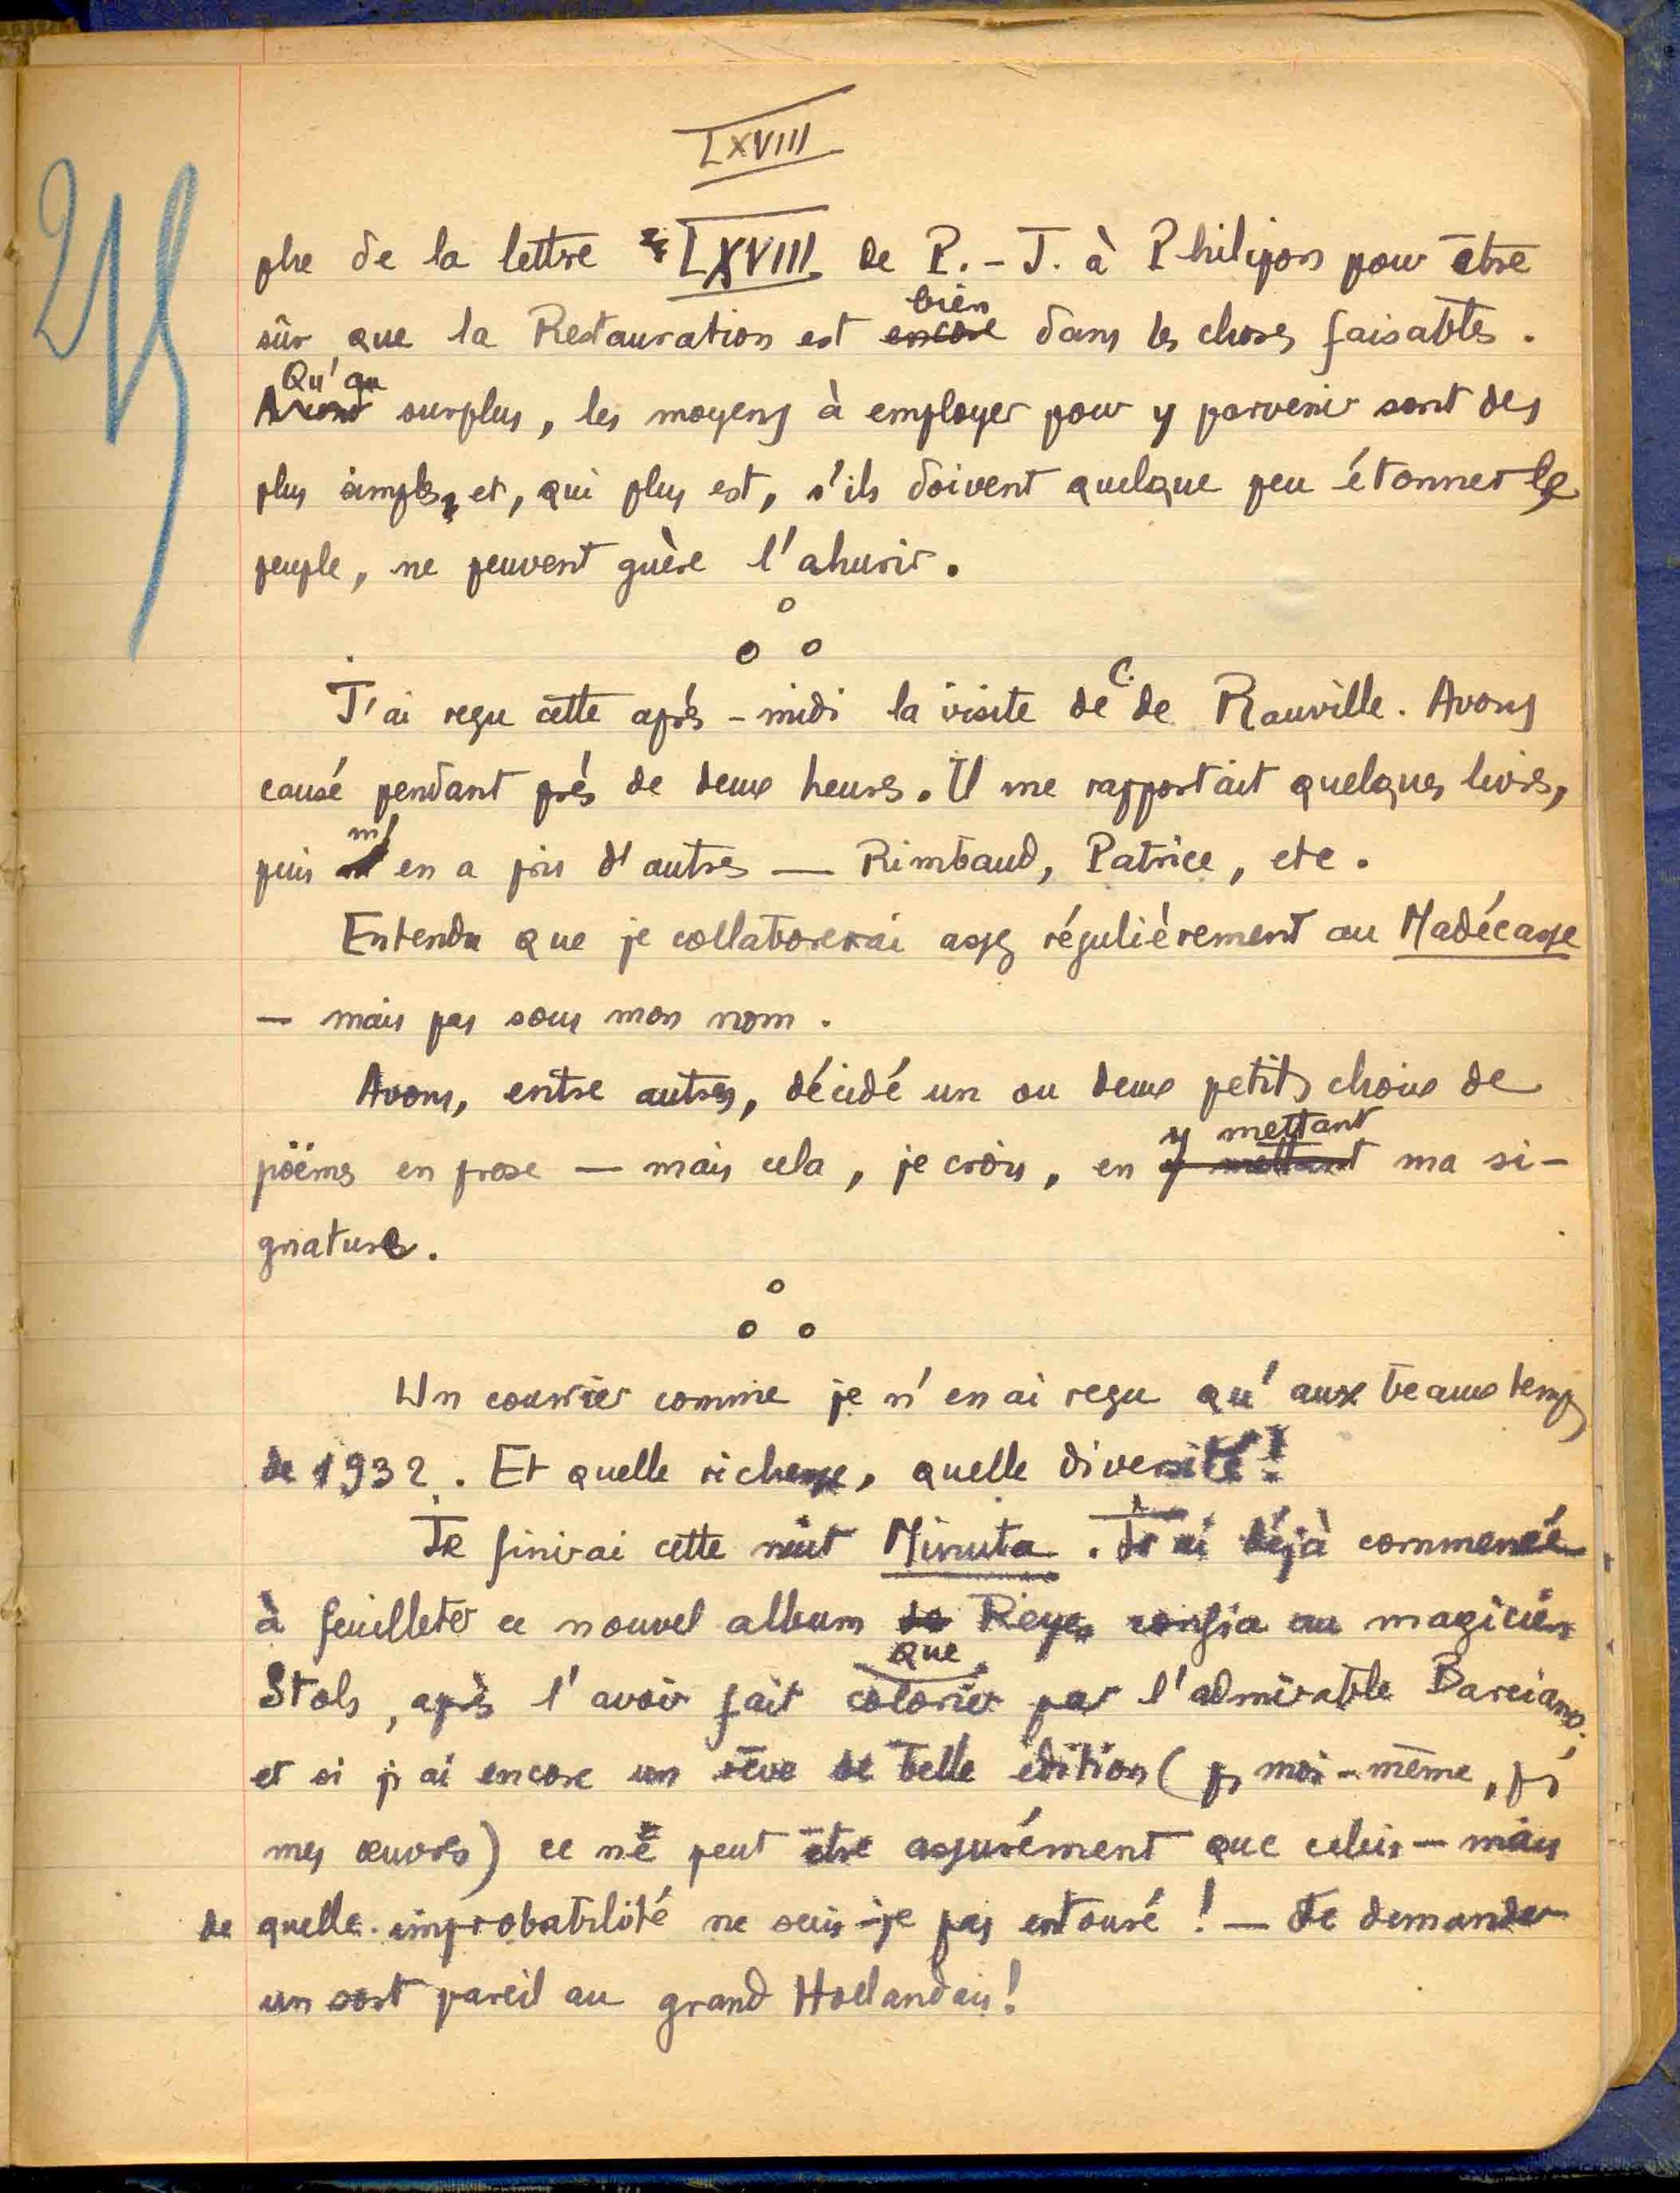 LXVIII
phe de la lettre LXVIII de P.-J. à Philipon pour être
bien
sûr que la Restauration est encore dans les choses faisables.
Qu'au
surplus, les moyens à employer pour y parvenir sont des
plus simples, et, qui plus est, s'ils doivent quelque peu étonner le
peuple, ne peuvent guère l'ahurir.
J'ai reçu cette après-midi la visite de C. de Rauville. Avons
causé pendant près de deux heures. Il me rapportait quelques livres,
puis m'en a pris d'autres — Rimbaud, Patrice, etc.
Entendu que je collaborerai assez régulièrement au Madécasse
— mais pas sous mon nom.
Avons, entre autres, décidé un ou deux petits choix de
y mettant
poëmes en prose — mais cela, je crois, en y mettant ma si-
gnature.
Un courrier comme je n'en ai reçu qu'aux beaux temps
de 1932. Et quelle richesse, quelle diversité!
Je finirai cette nuit Minuta. J'ai déjà commencé
à feuilleter ce nouvel album que Reyes confia au magicien
Stols, après l'avoir fait colorier par l'admirable Barciano;
et si j'ai encore un rêve de belle édition (pr moi-même, pr
mes œuvres) ce ne peut être assurément que celui-
mais
de quelle improbabilité ne suis-je pas entouré! — Je demande
un sort pareil au grand Hollandais!